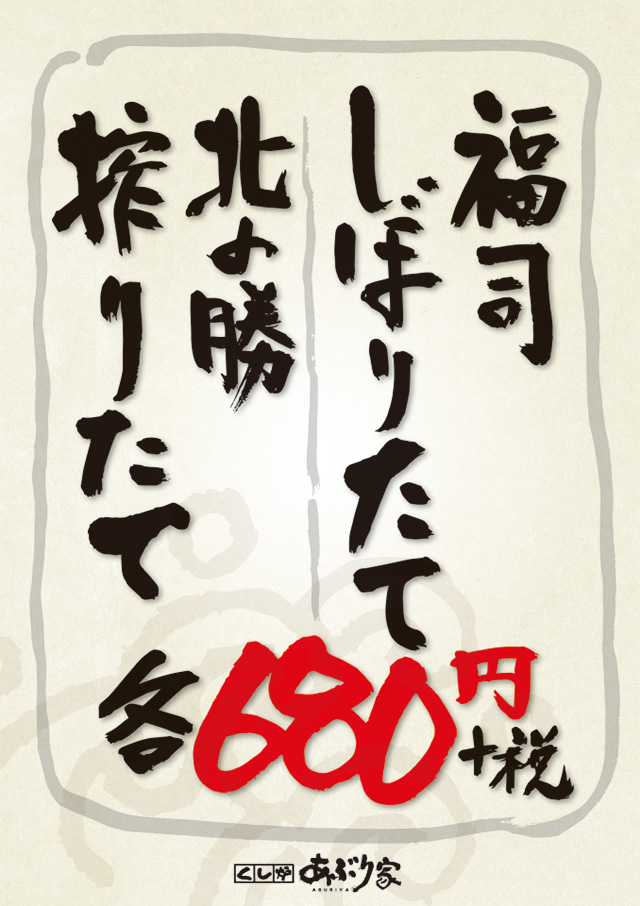 福司
しぼりたて
北の勝
搾りたて
各680円+税
くし炉 あぶり家
ABURIYA